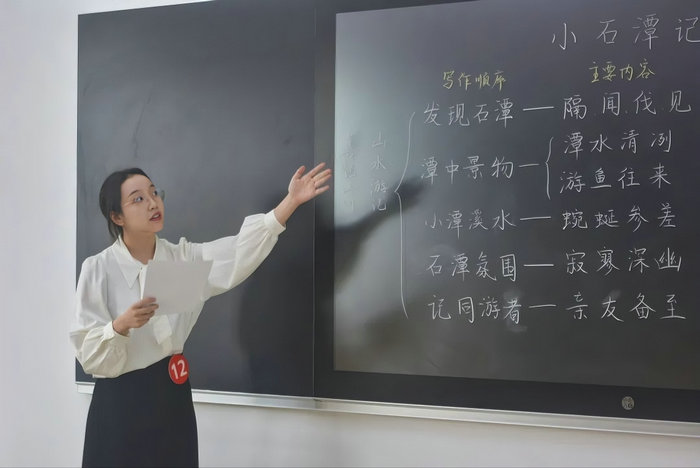 小石潭记
写作顺序 主要内容
发现石潭—隔.闻.伐.见
山水游记
潭中景物—潭水清冽
游鱼往来
小潭溪水—蜿蜒参差
石潭氛围—寂寥深幽
记同游者—亲友备至
12